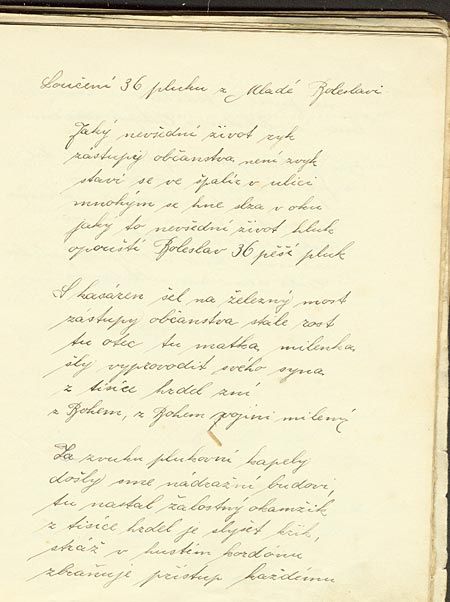 Loučení 36 pluku z Mladé Boleslavi
Jaký nevšední život zyk
zástupy občanstva není zvyk
staví se ve špalír v ulici
mnohým se hne slza v oku
jaky to nevšední život hluk
opouští Boleslav 36 pěší pluk
S kasáren šel na železný most
zástupy občanstva stále rost
tu otec tu matka, milenka
šly vyprovodit svého syna
z tisíce hrdel zní
z Bohem, z Bohem vojini milený
Za zvuku plukovní kapely
došly sme nádražní budovi,
tu nastal žalostný okamžik
z tisíce hrdel je slyšet křik,
stráž v hustém kordonu
zbraňuje přístup každému